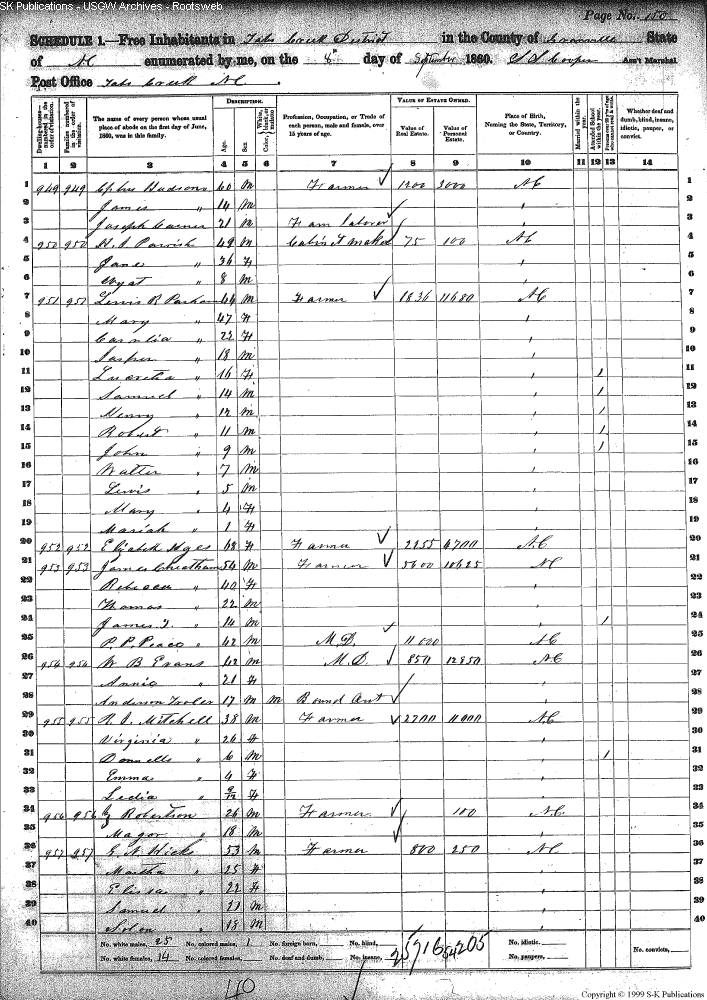 SK Publications - USGW Archives - Rootsweb
Page No. 150
SCHEDULE 1.—Free Inhabitants in Tabs Creek District in the County of Granville State
of NC enumerated by me, on the 8" day of September 1860. Ass't Marshal
Post Office Tabs Creek NC.
Dwelling-houses—numbered in the order of visitation.
Families numbered in the order of visitation.
The name of every person whose usual place of abode on the first day of June, 1860, was in this family.
DESCRIPTION.
Age.
Sex
Color, White, black, or mulatto.
Profession, Occupation, or Trade of each person, male and female, over 15 years of age.
VALUE OF ESTATE OWNED.
Value of Real Estate.
Value of Personal Estate.
Place of Birth, Naming the State, Territory, or Country.
Married within the year.
Attended School within the year.
Persons over 20 y'rs of age who cannot read & write.
Whether deaf and dumb, blind, insane, idiotic, pauper, or convict.
1 2 3 4 5 6 7 8 9 10 11 12 13 14
1 949 949 Hudson 60 M Farmer 1200 3000 NC 1
2 James " 14 M 2
3 Joseph 21 M Farm laborer 3
4 950 950 Parrish 49 M Cabinet maker 75 100 NC 4
5 Jane " 36 F 5
6 Wyat " 8 M 6
7 951 951 Lewis R Parham 44 M Farmer 1836 11680 NC 7
8 Mary " 47 F 8
9 Cornelia " 22 F 9
10 Jasper " 18 M 10
11 Lucretia " 16 F 1 11
12 Samuel " 14 M 1 12
13 Henry " 12 M 1 13
14 Robert " 11 M 1 14
15 John " 9 M 1 15
16 Walter " 7 M 16
17 Lewis " 5 M 17
18 Mary " 4 F 18
19 Mariah " 1 F 19
20 952 952 68 F Farmer 2255 6700 NC 20
21 953 953 James Cheatham 54 M Farmer 5600 10625 NC 21
22 Rebecca " 40 F 22
23 Thomas " 22 M 23
24 James T. " 14 M 1 24
25 P. P. Peace " 42 M M.D. 11000 NC 25
26 954 954 W B Evans 42 M M.D. 850 12850 NC 26
27 Annie " 21 F 27
28 Anderson 17 M M Bound Aut 28
29 955 955 R. J. Mitchell 38 M Farmer 2700 11000 NC 29
30 Virginia " 26 F 30
31 " 6 M 1 31
32 Emma " 4 F 32
33 Lidia " 9/12 F 33
34 956 956 Robertson 26 M Farmer 100 NC 34
35 Magor " 18 M 35
36 957 957 E. N. Hicks 53 M Farmer 800 250 NC 36
37 Martha " 25 F 37
38 " 22 F 38
39 Samuel " 21 M 39
40 Solon " 18 M 40
No. white males, 25 No. colored males, 1 No. foreign born, No. blind, No. idiotic,
No. white females, 14 No. colored females, No. deaf and dumb, No. insane, No. paupers, No. convicts,
Copyright © 1999 S-K Publications